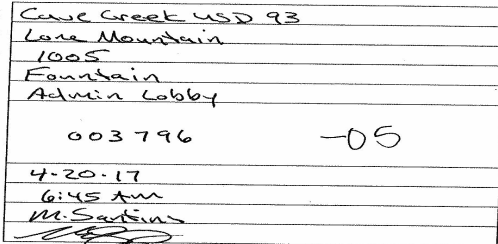 Cave Creek USD 93
Lone Mountain
1005
Fountain
Admin Lobby
003796 -05
4-20-17
6:45 AM